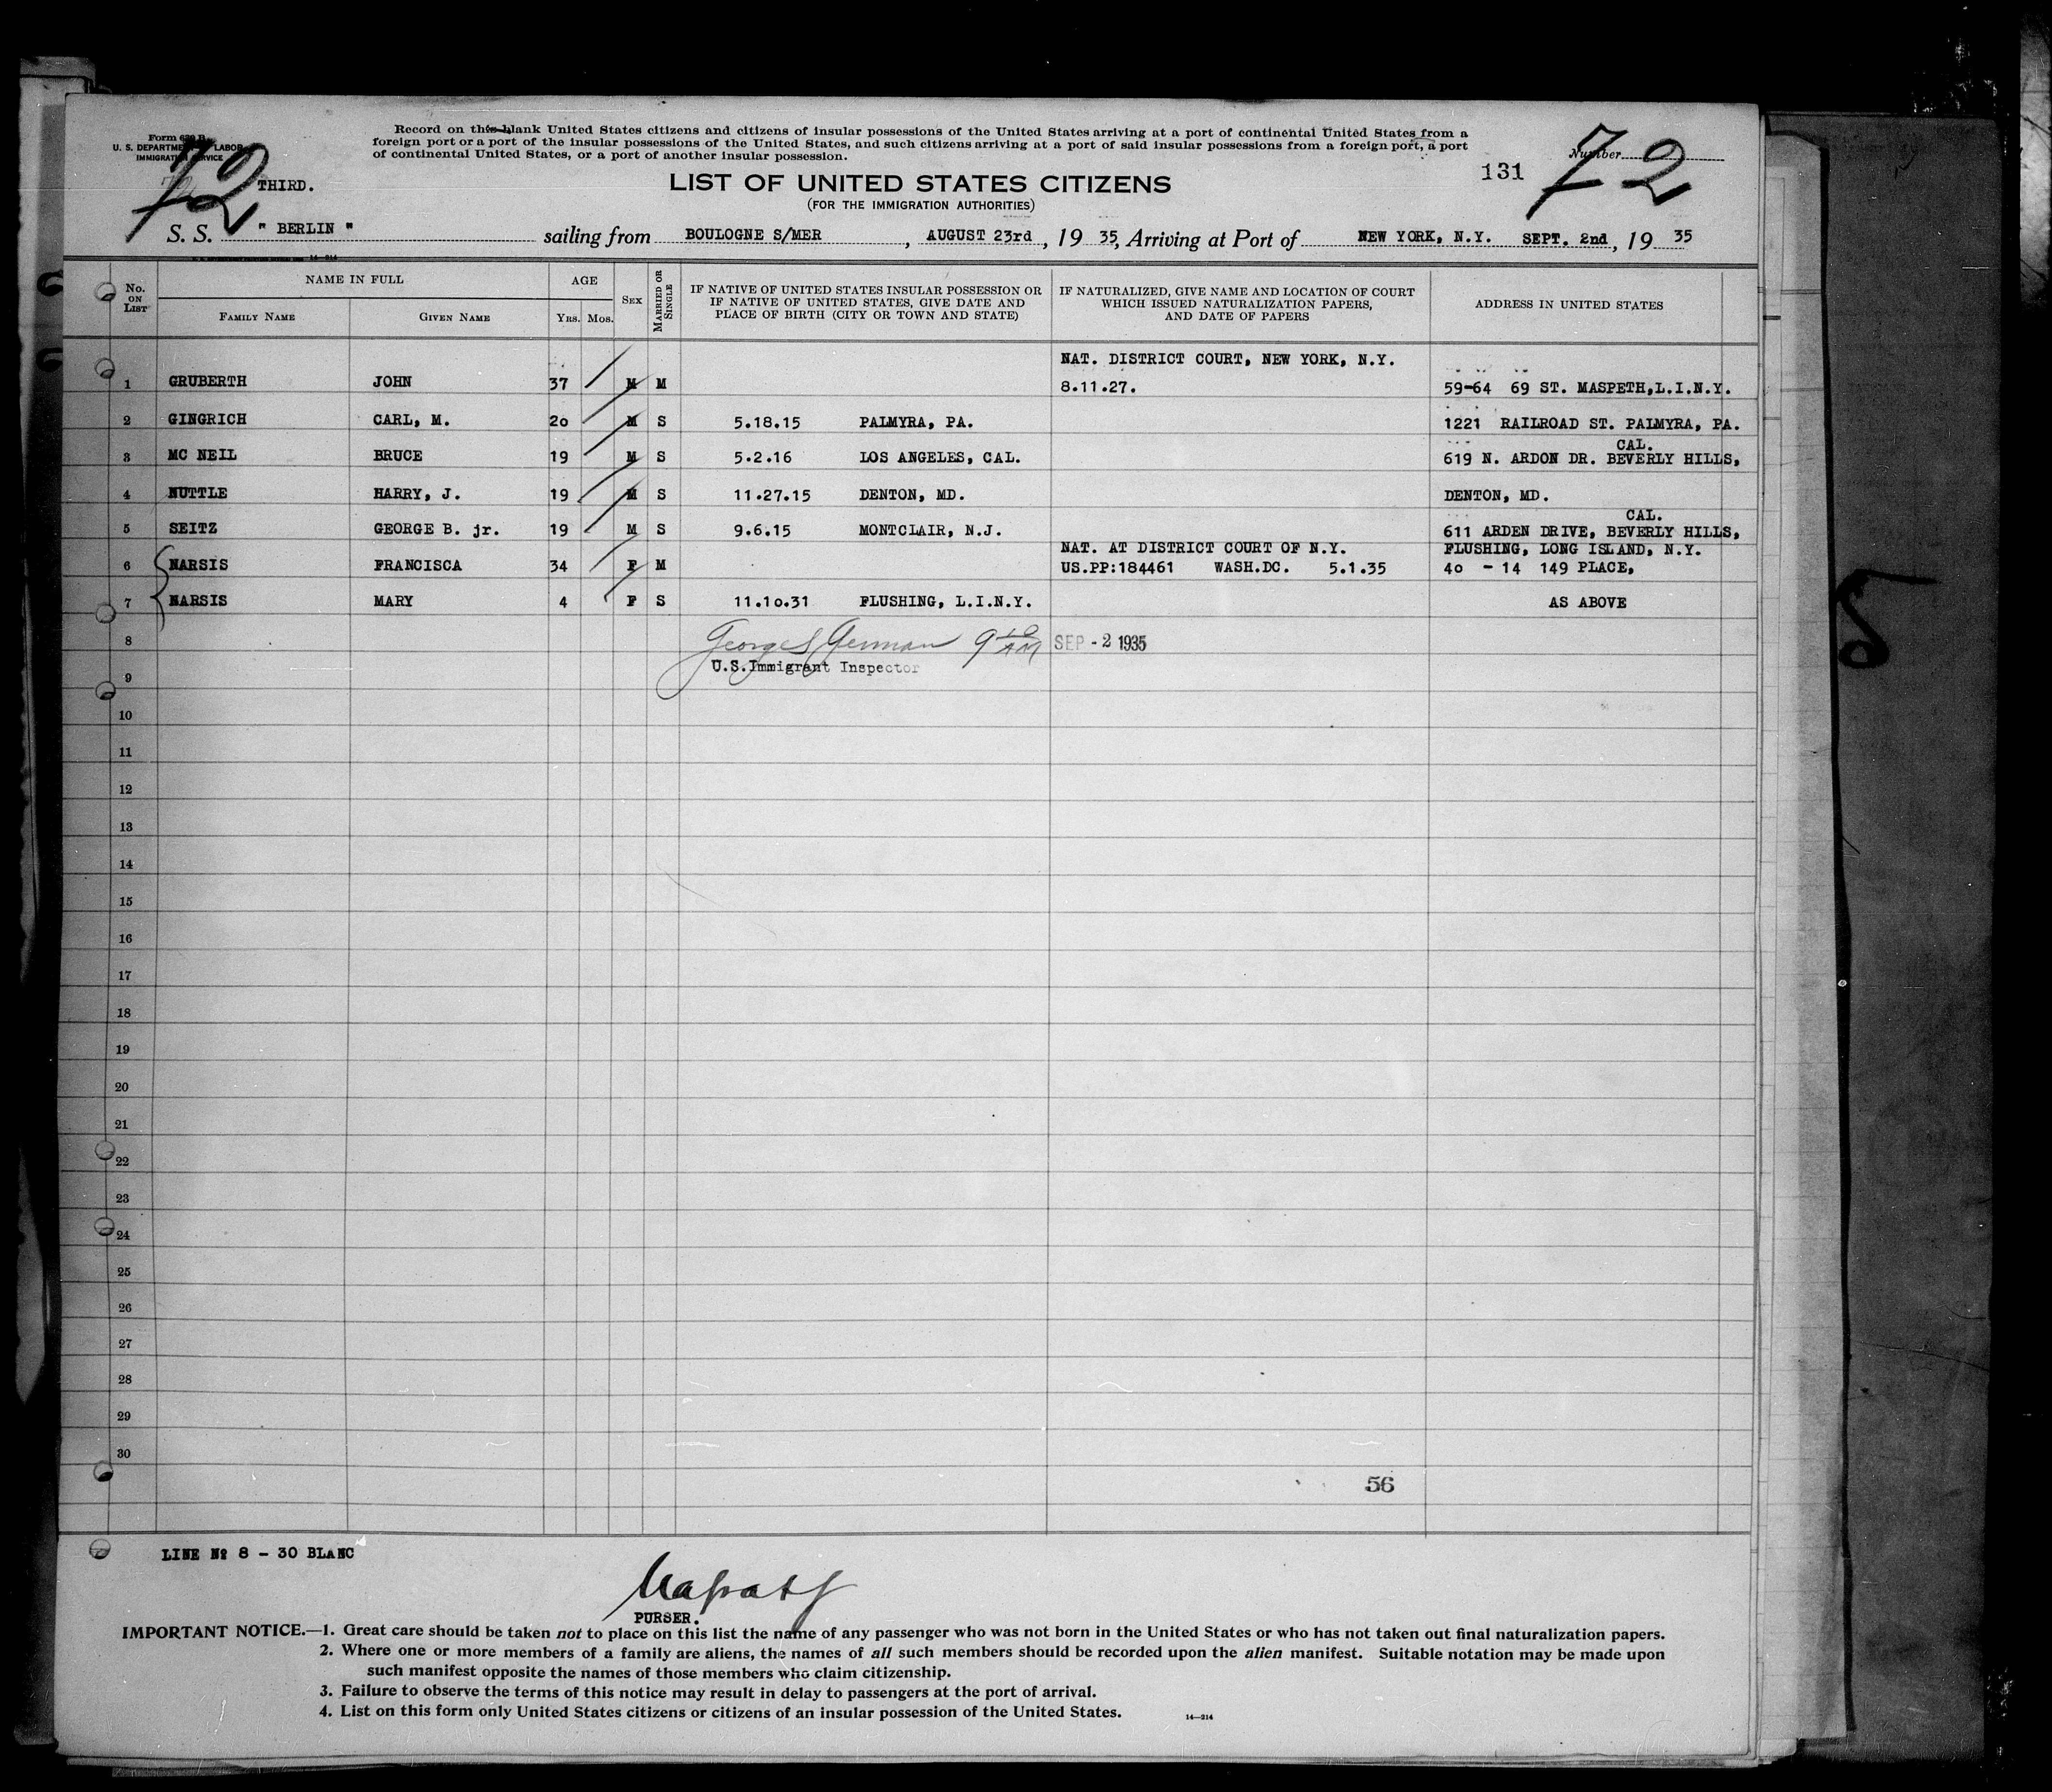 Form 630 B
U. S. DEPARTMENT OF LABOR
IMMIGRATION SERVICE
Record on this blank United States citizens and citizens of insular possessions of the United States arriving at a port of continental United States from a
foreign port or a port of the insular possessions of the United States, and such citizens arriving at a port of said insular possessions from a foreign port, a port
of continental United States, or a port of another insular possession.
Number
72
THIRD.
131
72
LIST OF UNITED STATES CITIZENS
(FOR THE IMMIGRATION AUTHORITIES)
S. S. " BERLIN " sailing from BOULOGNE S/MER, AUGUST 23rd, 19 35, Arriving at Port of NEW YORK, N.Y. SEPT. 2nd, 19 35
No. ON LIST
NAME IN FULL
FAMILY NAME GIVEN NAME
AGE
YRS. MOS.
SEX
MARRIED OR SINGLE
IF NATIVE OF UNITED STATES INSULAR POSSESSION OR
IF NATIVE OF UNITED STATES, GIVE DATE AND
PLACE OF BIRTH (CITY OR TOWN AND STATE)
IF NATURALIZED, GIVE NAME AND LOCATION OF COURT
WHICH ISSUED NATURALIZATION PAPERS,
AND DATE OF PAPERS
ADDRESS IN UNITED STATES
NAT. DISTRICT COURT, NEW YORK, N.Y.
1 GRUBERTH JOHN 37 M M 8.11.27. 59-64 69 ST. MASPETH,L.I.N.Y.
2 GINGRICH CARL, M. 20 M S 5.18.15 PALMYRA, PA. 1221 RAILROAD ST. PALMYRA, PA.
CAL.
3 MC NEIL BRUCE 19 M S 5.2.16 LOS ANGELES, CAL. 619 N. ARDON DR. BEVERLY HILLS,
4 NUTTLE HARRY, J. 19 M S 11.27.15 DENTON, MD. DENTON, MD.
CAL.
5 SEITZ GEORGE B. jr. 19 M S 9.6.15 MONTCLAIR, N.J. 611 ARDEN DRIVE, BEVERLY HILLS,
NAT. AT DISTRICT COURT OF N.Y. FLUSHING, LONG ISLAND, N.Y.
6 NARSIS FRANCISCA 34 F M US.PP:184461 WASH.DC. 5.1.35 40 - 14 149 PLACE,
7 NARSIS MARY 4 F S 11.10.31 FLUSHING, L.I.N.Y. AS ABOVE
8 George S German 9 10 AM SEP - 2 1935
U.S.Immigrant Inspector
9
10
11
12
13
14
15
16
17
18
19
20
21
22
23
24
25
26
27
28
29
30
56
LINE № 8 - 30 BLANC
PURSER.
IMPORTANT NOTICE.—1. Great care should be taken not to place on this list the name of any passenger who was not born in the United States or who has not taken out final naturalization papers.
2. Where one or more members of a family are aliens, the names of all such members should be recorded upon the alien manifest. Suitable notation may be made upon
such manifest opposite the names of those members who claim citizenship.
3. Failure to observe the terms of this notice may result in delay to passengers at the port of arrival.
4. List on this form only United States citizens or citizens of an insular possession of the United States.
14—214